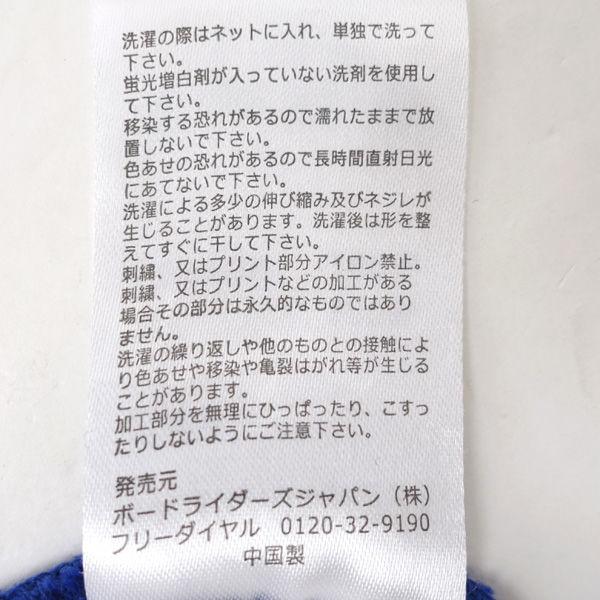 洗濯の際はネットに入れ、単独で洗って
下さい。
蛍光増白剤が入っていない洗剤を使用し
て下さい。
移染する恐れがあるので濡れたままで放
置しないで下さい。
色あせの恐れがあるので長時間直射日光
にあてないで下さい。
洗濯による多少の伸び縮み及びネジレが
生じることがあります。洗濯後は形を整
えてすぐに干して下さい。
刺繍、又はプリント部分アイロン禁止。
刺繍、又はプリントなどの加工がある
場合その部分は永久的なものではあり
ません。
洗濯の繰り返しや他のものとの接触によ
り色あせや移染や亀裂はがれ等が生じる
ことがあります。
加工部分を無理にひっぱったり、こすっ
たりしないようにご注意下さい。
発売元
ボードライダーズジャパン（株）
フリーダイヤル 0120-32-9190
中国製